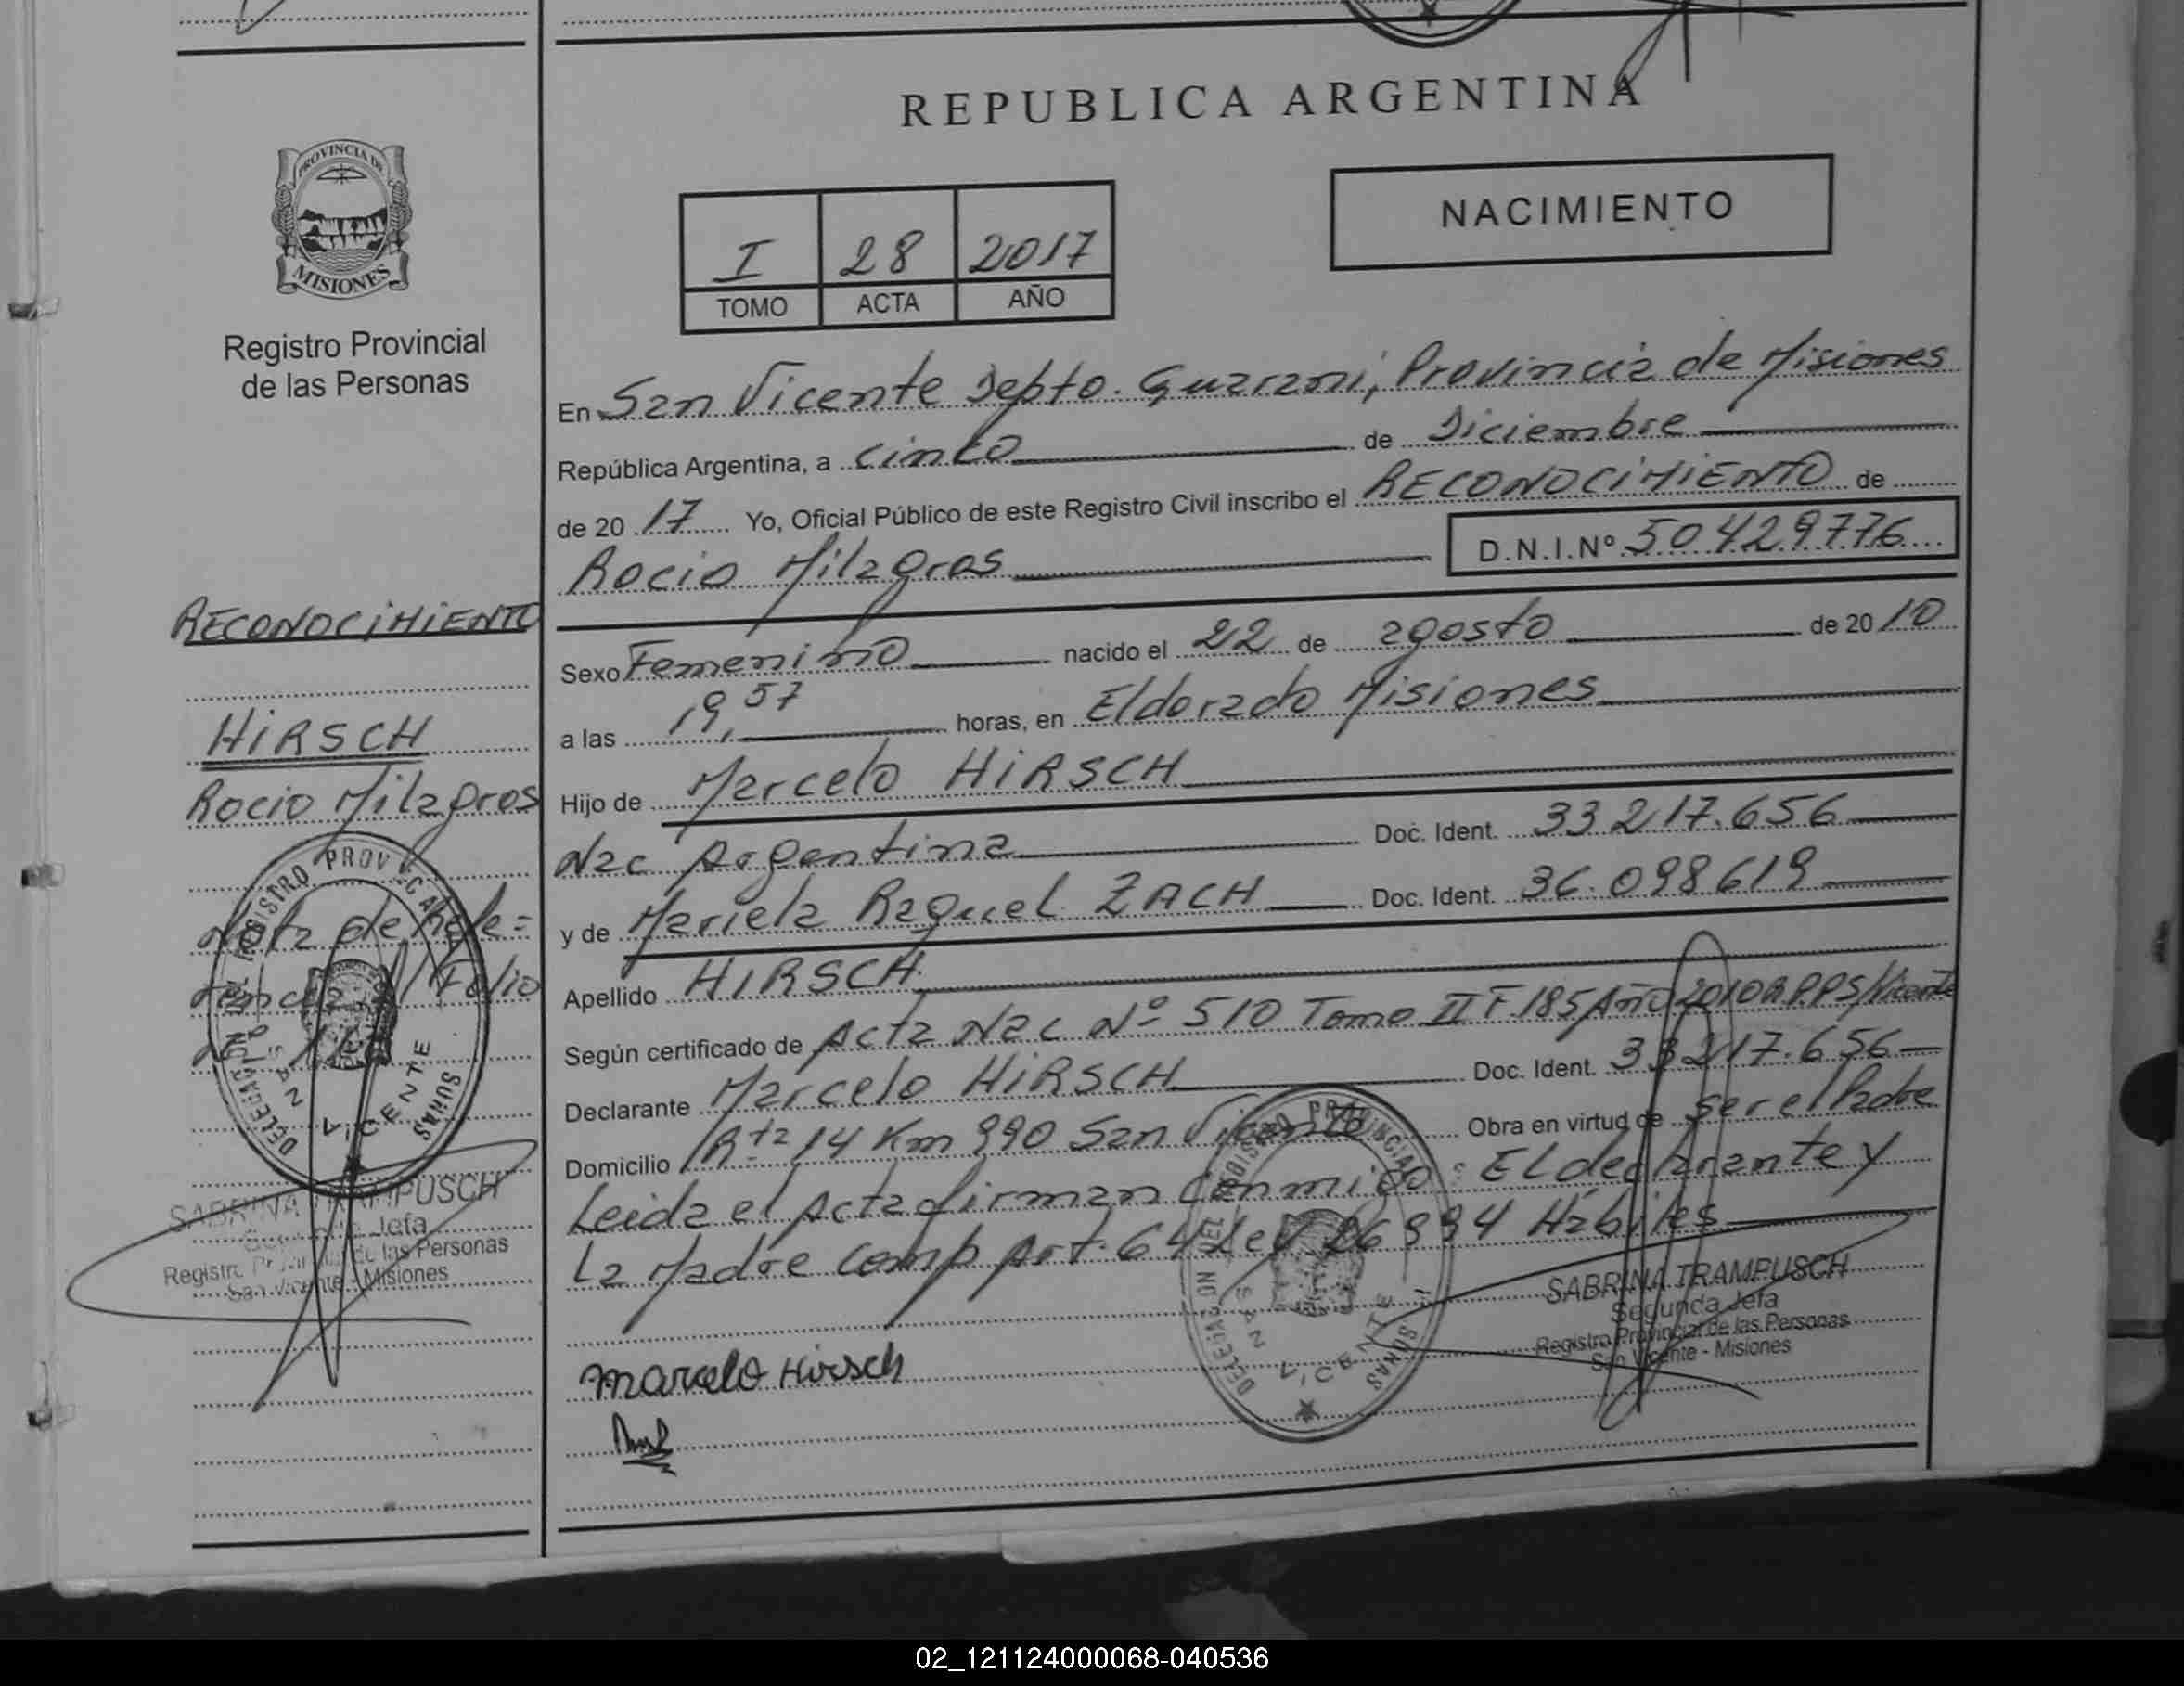 REPUBLICA ARGENTINA
PROVINCIA DE
MISIONES
Registro Provincial
de las Personas
I 28 2017
TOMO ACTA AÑO
NACIMIENTO
En San Vicente Depto. Guarani, Provincia de Misiones
República Argentina, a cinco de Diciembre
de 20 17 Yo, Oficial Público de este Registro Civil inscribo el RECONOCIMIENTO de
Rocio Milagros D.N.I.Nº 50429776
Sexo Femenino nacido el 22 de agosto de 20 10
a las 19,57 horas, en Eldorado Misiones
Hijo de Marcelo HIRSCH
Nac Argentina Doc. Ident. 33 217.656
y de Mariela Raquel ZACH Doc. Ident. 36.098619
Apellido HIRSCH
Según certificado de Acta Nac Nº 510 Tomo II F.185 Año 2010 R.P.P S/Vicente
Declarante Marcelo HIRSCH Doc. Ident. 33217.656
Domicilio Rta 14 Km 990 San Vicente Obra en virtud de ser el Padre
Leida el Acta firman conmigo: El declarante y
La Madre comp Art. 64 Ley 26994 Hábiles
Marcelo Hirsch
SABRINA TRAMPUSCH
Segunda Jefa
Registro Provincial de las Personas
San Vicente - Misiones
RECONOCIMIENTO
HIRSCH
Rocio Milagros
Nota de
Folio
SABRINA TRAMPUSCH
Jefa
Registro de las Personas
San Vicente - Misiones
SAN VICENTE
SAN VICENTE
02_121124000068-040536